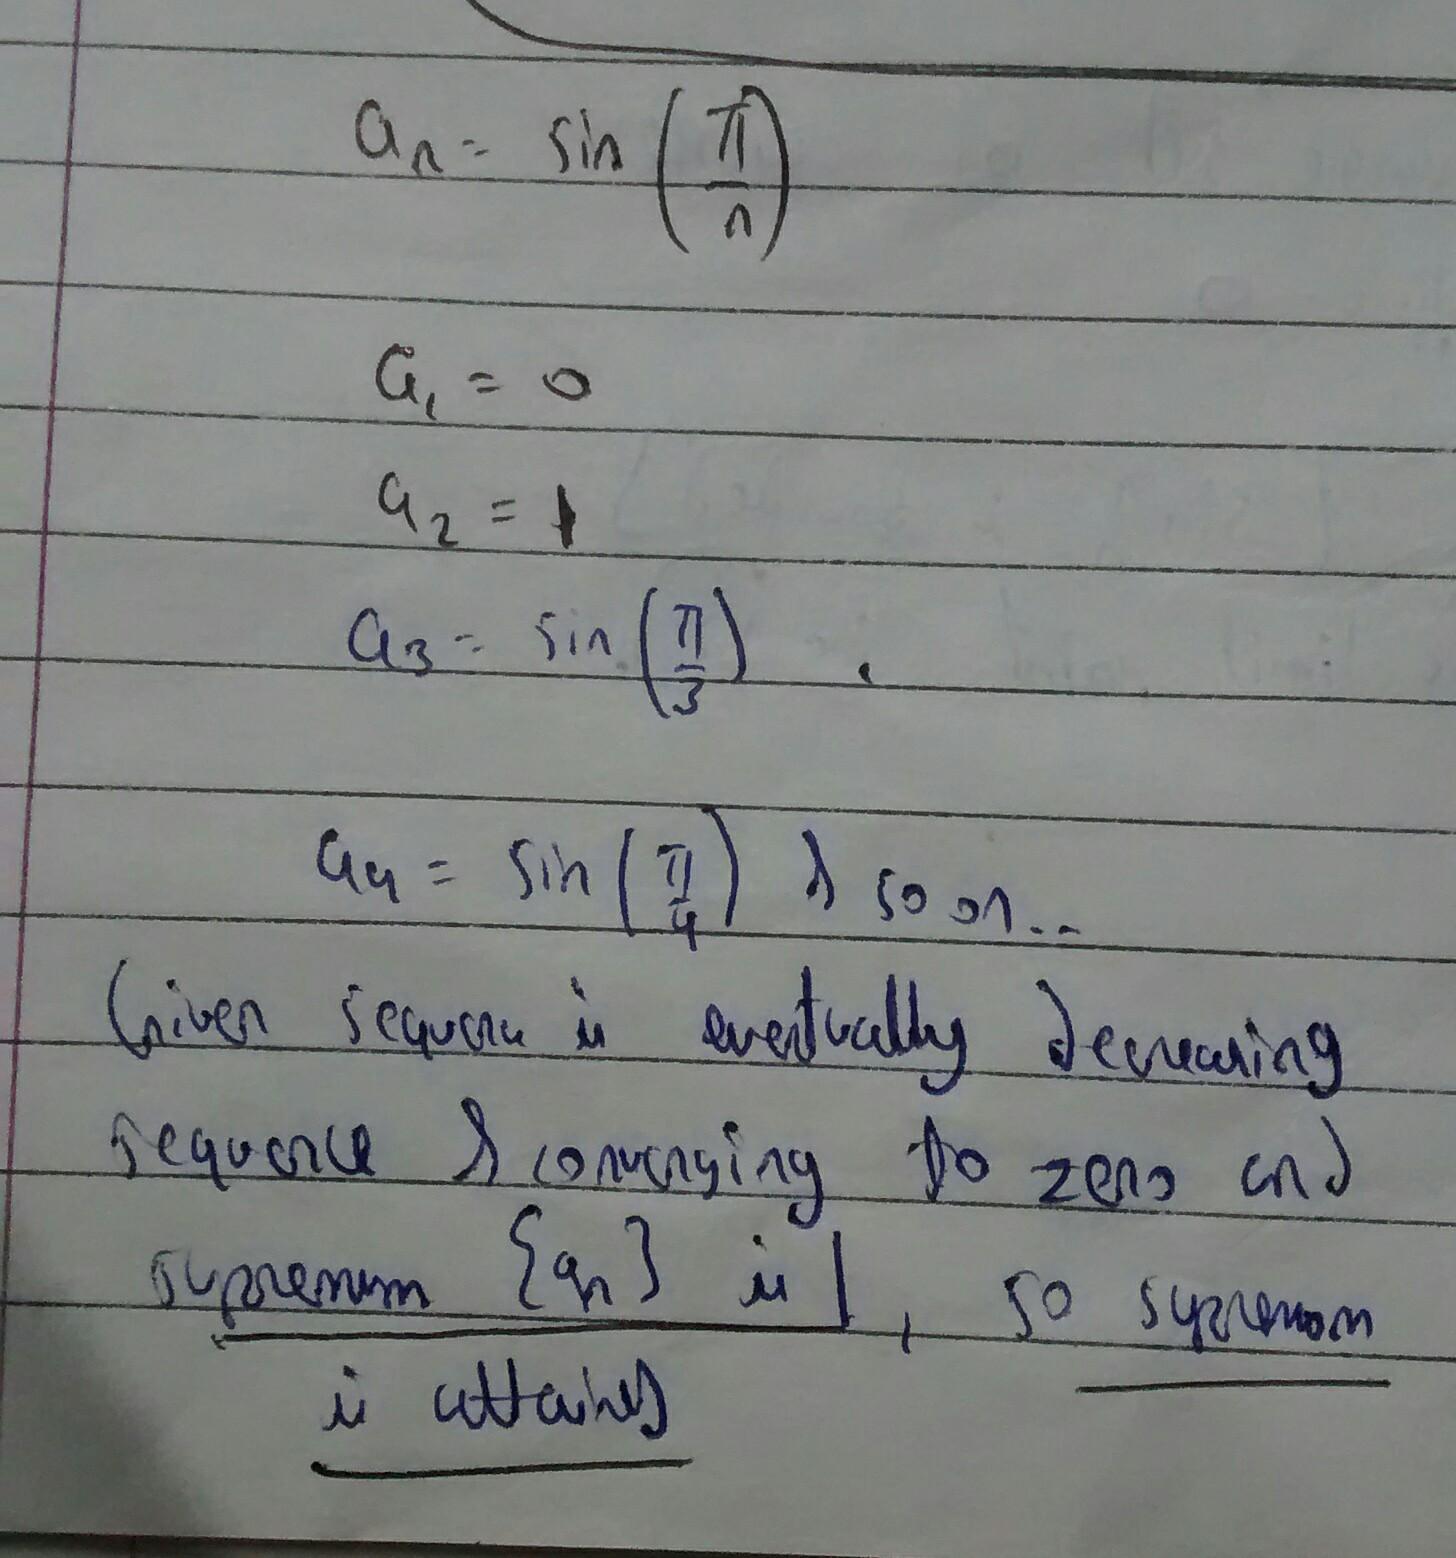 aₙ = sin (π/n)
a₁ = 0
a₂ = 1
a₃ = sin (π/3) .
a₄ = sin (π/4) & so on...
Given sequence is eventually decreasing
sequence & converging to zero and
supremum {aₙ} is 1, so supremum
is attained